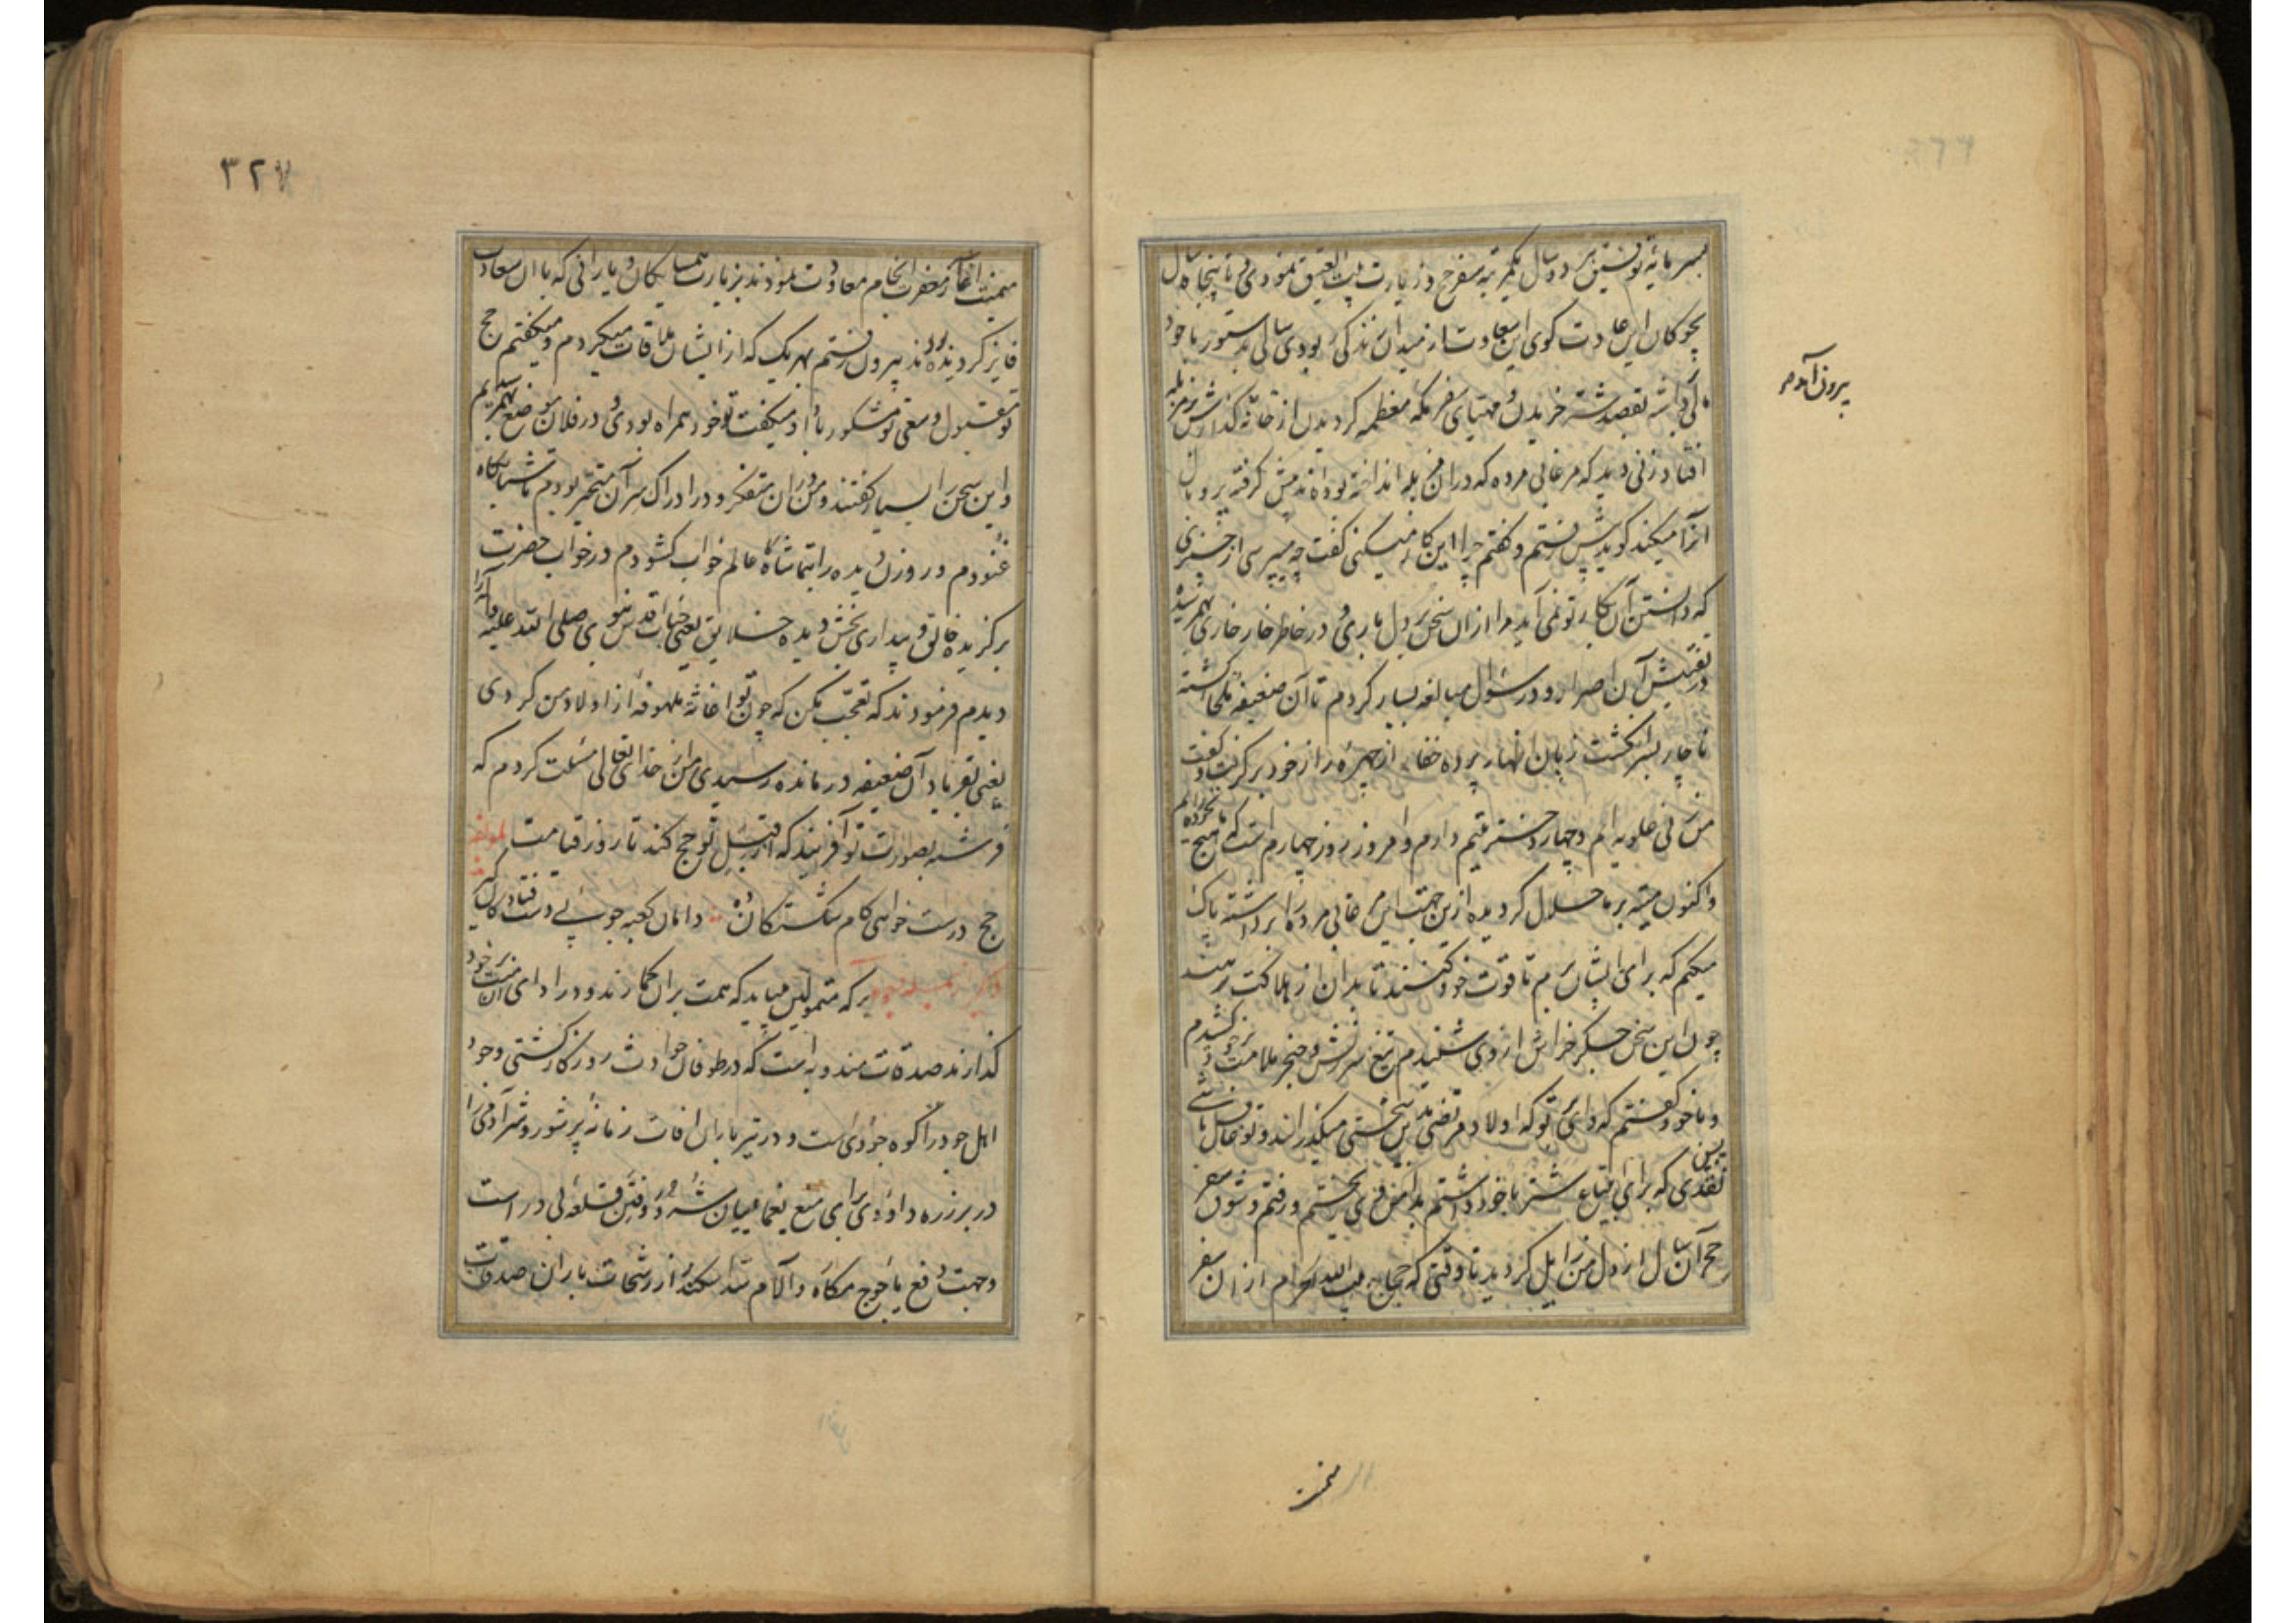 بسرمایه توفیق هر دو سال یکمرتبه سفر حج و زیارت بیت العتیق نمودی و تا پنجاه سال
بچوکان این عادت کوی این سعادت از میدان زندکی ربودی سالی بدستور با خود
بقصد شتر خریدن و مهیای سفر مکه معظمه کردیدن از خانه کذارش بر مزبله
افتاد زنی دید که مرغابی مرده که در ان مزبله انداخته بوده اند پیش کرفته پر و بال
انرا میکند کوید پیش رفتم و کفتم چرا این کار میکنی کفت چه میپرسی از چیزی
که دانستن آن بکار تو نمی آید مرا از ان سخن بر دل باری و در خاطر خار خاری بهم رسیده
در تفتیش آن اصرار و در سؤال مبالغه بسیار کردم تا آن ضعیفه ملجا کشته
ناچار بسر انکشت زبان اظهار پرده خفا از چهره راز خود بر کرفت و کفت
من زنی علویه ام و چهار دختر یتیم دارم و امروز روز چهارم است که هیچ نخورده ایم
و اکنون میته بر ما حلال کردیده ازین جهت این مرغابی مرده را برداشته پاک
میکنم که برای ایشان برم تا قوت خود کنند تا بدان از هلاکت برهند
چون این سخن جکر خراش از وی شنیدم تیغ سرزنش و خنجر ملامت بر خود کشیدم
و با خود کفتم که وای بر تو که اولاد مرتضی بدین سختی میکذرانند و تو غافل باشی
نقدی که برای ابتیاع شتر با خود داشتم بدامن وی ریختم و رفتم و شوق سفر
حج آن سال از دل من زایل کردید تا وقتی که حجاج بیت الله الحرام از ان سفر
بیرون آمدم
میمنت
۳۲۷
میمنت آغاز مغفرت انجام معاودت نمودند بزیارت همسایکان و یارانی که باان سعادت
فایز کردیده بودند بیرون رفتم بهر یک که از ایشان ملاقات میکردم و میکفتم حج
تو مقبول و سعی تو مشکور باد او میکفت تو خود همراه بودی و در فلان موضع بهم رسیدیم
و این سخن را بسیار کفتند و من در ان متفکر و در ادراک سر آن متحیر بودم تا شبانکاه
غنودم و روزن دیده را بتماشاکاه عالم خواب کشودم در خواب حضرت
برکزیده خالق و بیداری بخش دیده خلایق یعنی جناب اقدس نبوی صلی الله علیه و آله را
دیدم فرمودند که تعجب مکن که چون تو اغاثه ملهوفه از اولاد من کردی
یعنی بفریاد آن ضعیفه درمانده رسیدی من از خدای تعالی مسئلت کردم که
فرشته بصورت تو آفریند که از قبل تو حج کند تا روز قیامت لمولفه
حج درست خواهی کام شکستکان ده دامان کعبه چوبی دست فتاده کان کیر
بر که متمولین میباید که همت بران کمارند و در ادای ان منت بر خود
کذارند صدقات مندوبه است که در طوفان حوادث روزکار کشتی وجود
اهل جود را کوه جودی است و در تیر باران افات زمانه پر شور و شر آدمی را
در بر زره داودی برای منع یغماییان شرور و فتن قلعه بی در است
و جهت دفع یأجوج مکاره و آلام سد اسکندر از رشحات باران صدقات